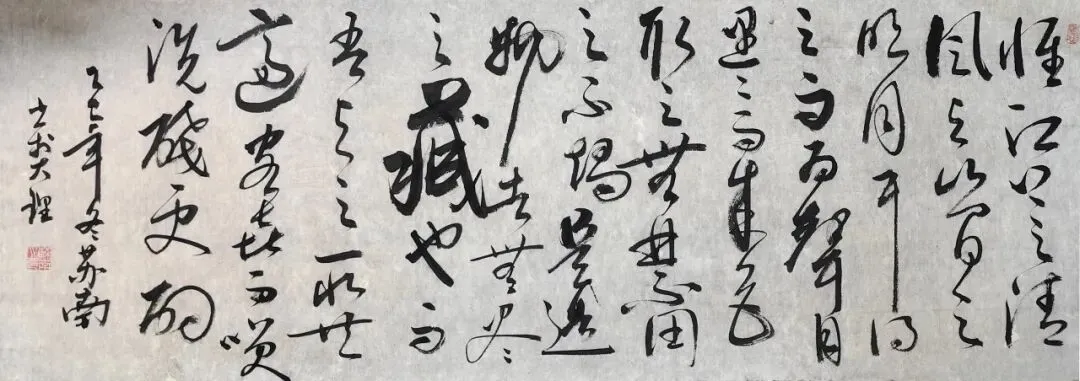 惟江上之清
风与山间之
明月耳得
之而为聲目
遇之而成色
取之無禁用
之不竭是造
物者無尽
之藏也而
吾与子之所共
適客喜而笑
洗盞更酌
乙巳年冬蘇南
书於大理